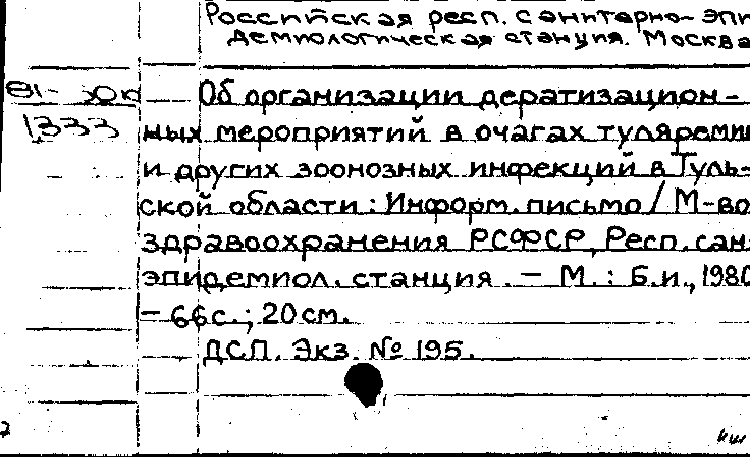 Российская респ. санитарно-эпи
демиологическая станция. Москва
81-
1333
Об организации дератизацион-
ных мероприятий в очагах туляреми
и других зоонозных инфекций в Туль-
ской области: Информ. письмо / М-во
здравоохранения РСФСР, Респ. сан.
эпидемиол. станция. — М.: Б.и., 1980
— 66 с.; 20 см.
ДСП. Экз. № 195.